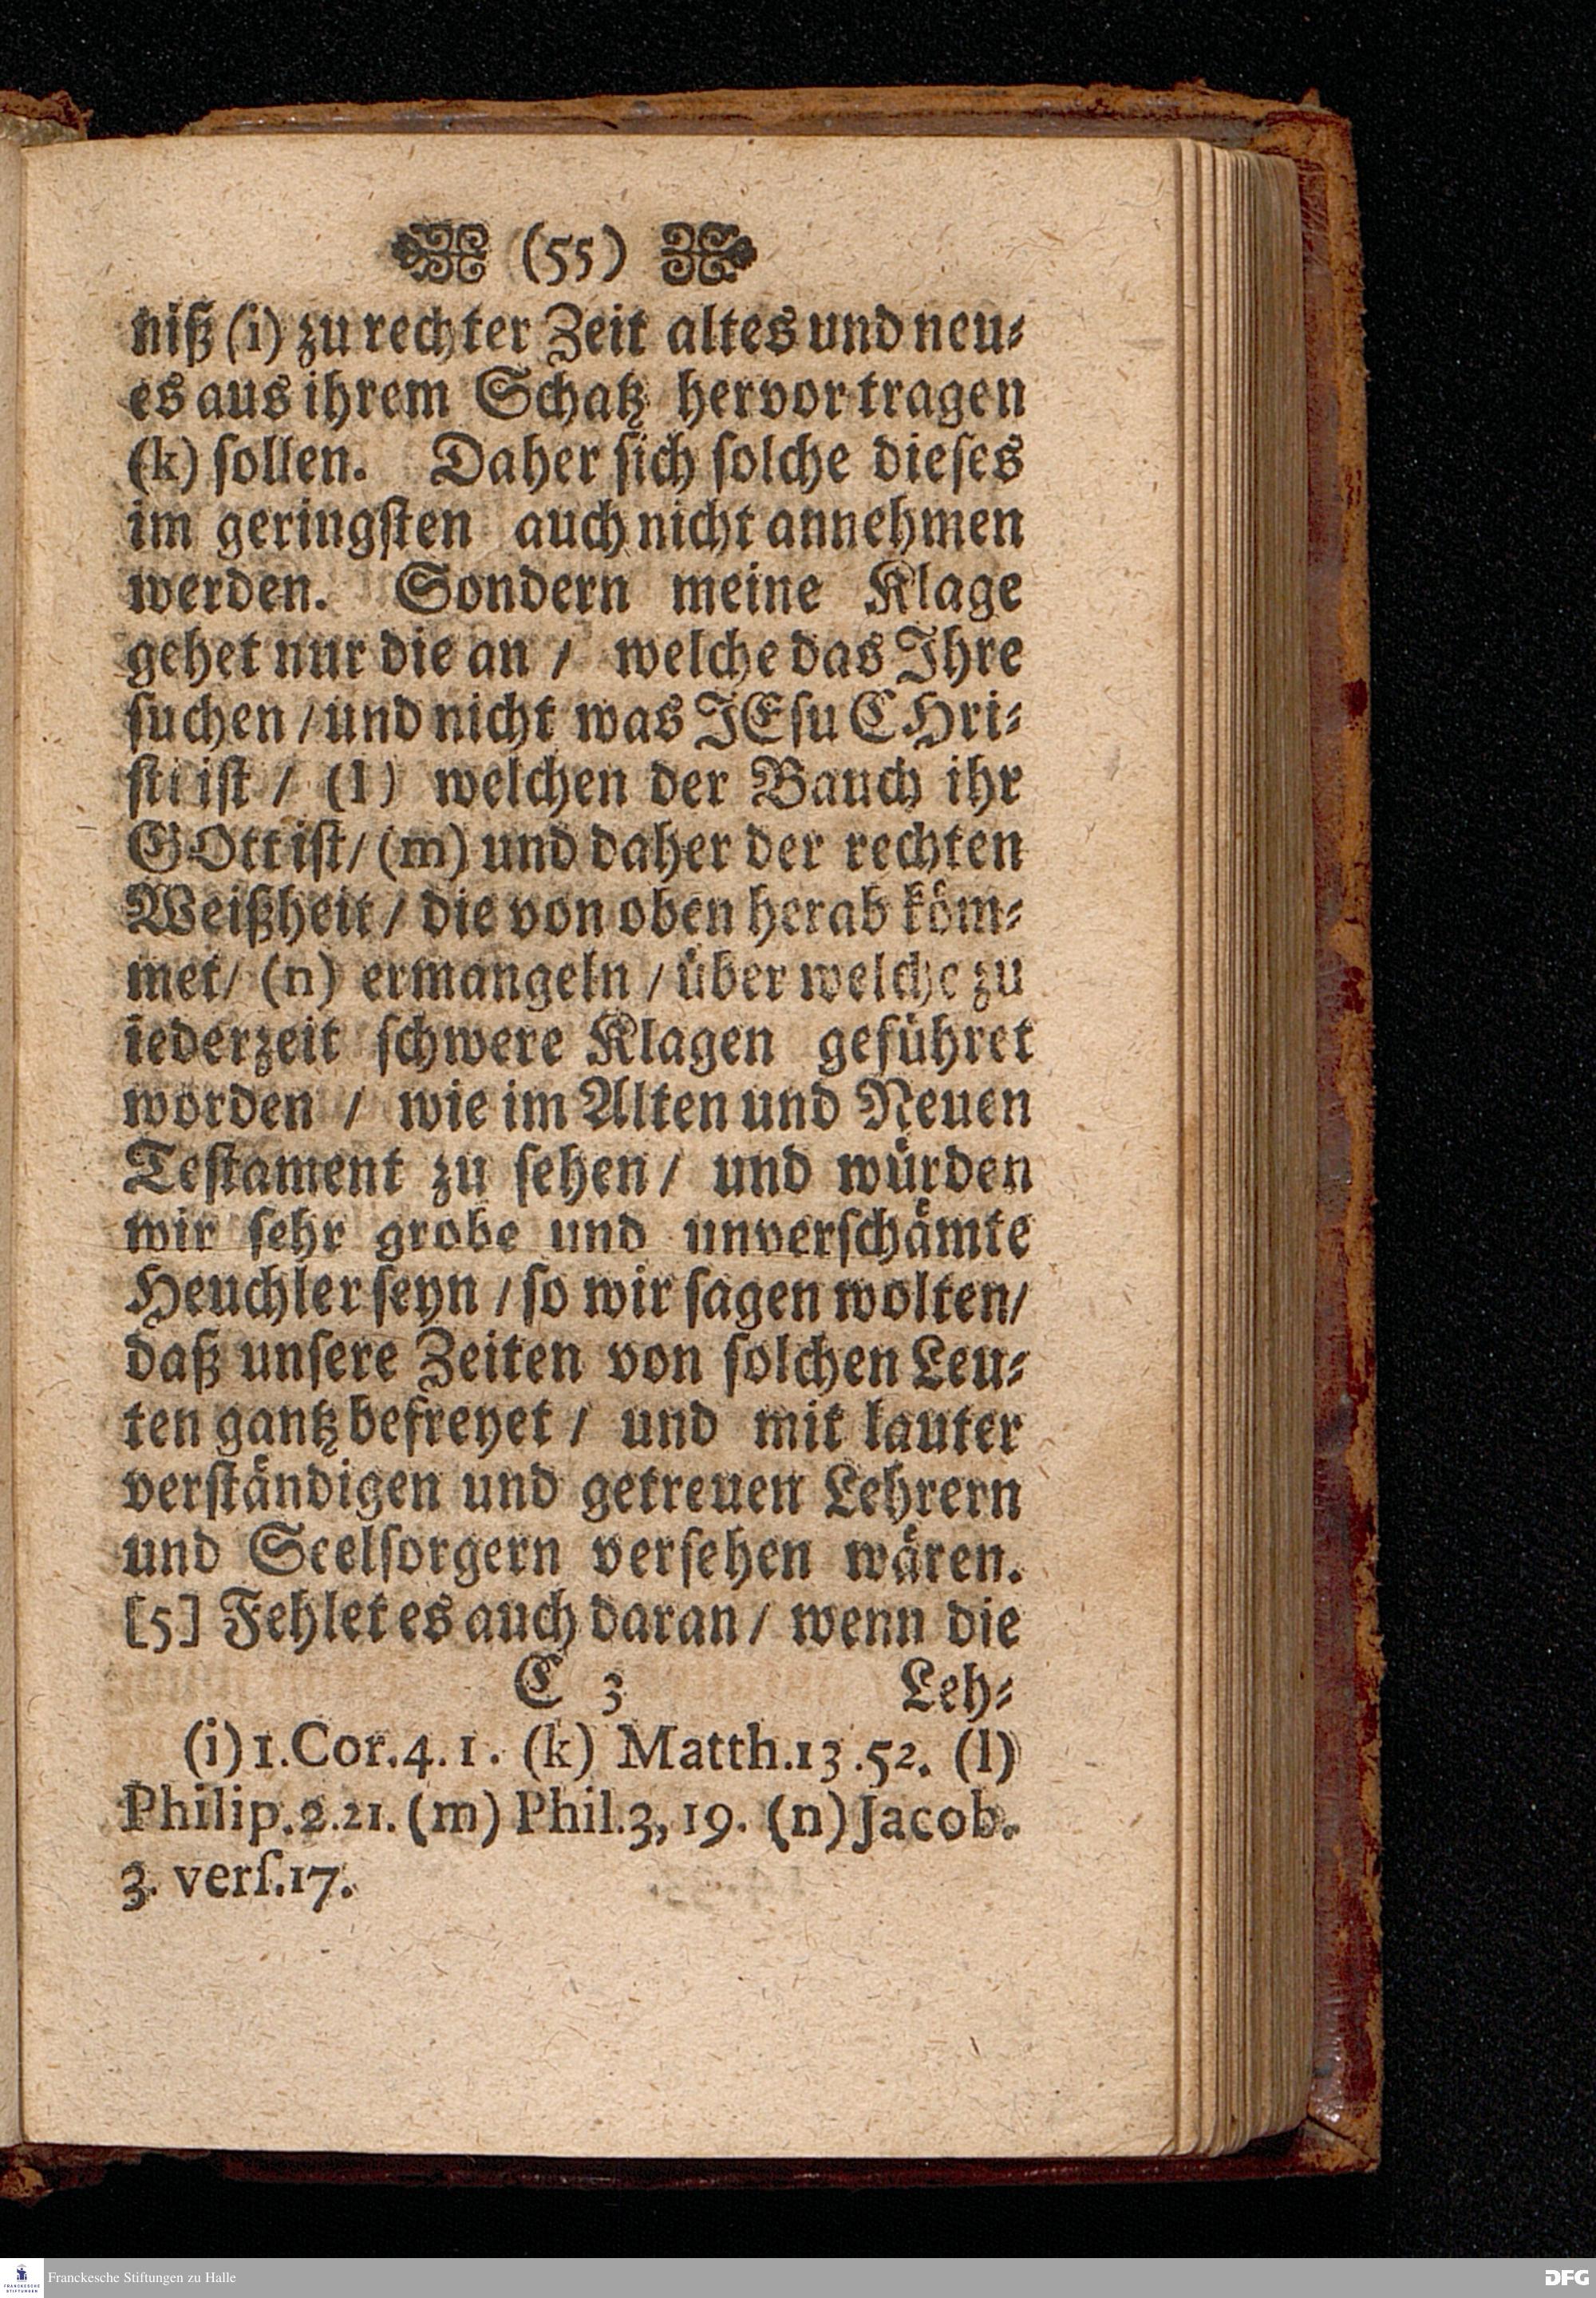 (55)
niß (i) zu rechter Zeit altes und neu⸗
es aus ihrem Schatz hervor tragen
(k) ſollen. Daher ſich ſolche dieſes
im geringſten auch nicht annehmen
werden. Sondern meine Klage
gehet nur die an / welche das Ihre
ſuchen / und nicht was JEſu CHri⸗
ſti iſt / (l) welchen der Bauch ihr
GOtt iſt / (m) und daher der rechten
Weißheit / die von oben herab köm⸗
met / (n) ermangeln / über welche zu
iederzeit ſchwere Klagen geführet
worden / wie im Alten und Neuen
Teſtament zu ſehen / und würden
wir ſehr grobe und unverſchämte
Heuchler ſeyn / ſo wir ſagen wolten /
daß unſere Zeiten von ſolchen Leu⸗
ten gantz befreyet / und mit lauter
verſtändigen und getreuen Lehrern
und Seelſorgern verſehen wären.
[5] Fehlet es auch daran / wenn die
C 3 Leh⸗
(i) 1. Cor. 4. 1. (k) Matth. 13. 52. (l)
Philip. 2. 21. (m) Phil. 3, 19. (n) Jacob.
3. verſ. 17.
FRANCKESCHE STIFTUNGEN
Franckesche Stiftungen zu Halle
DFG